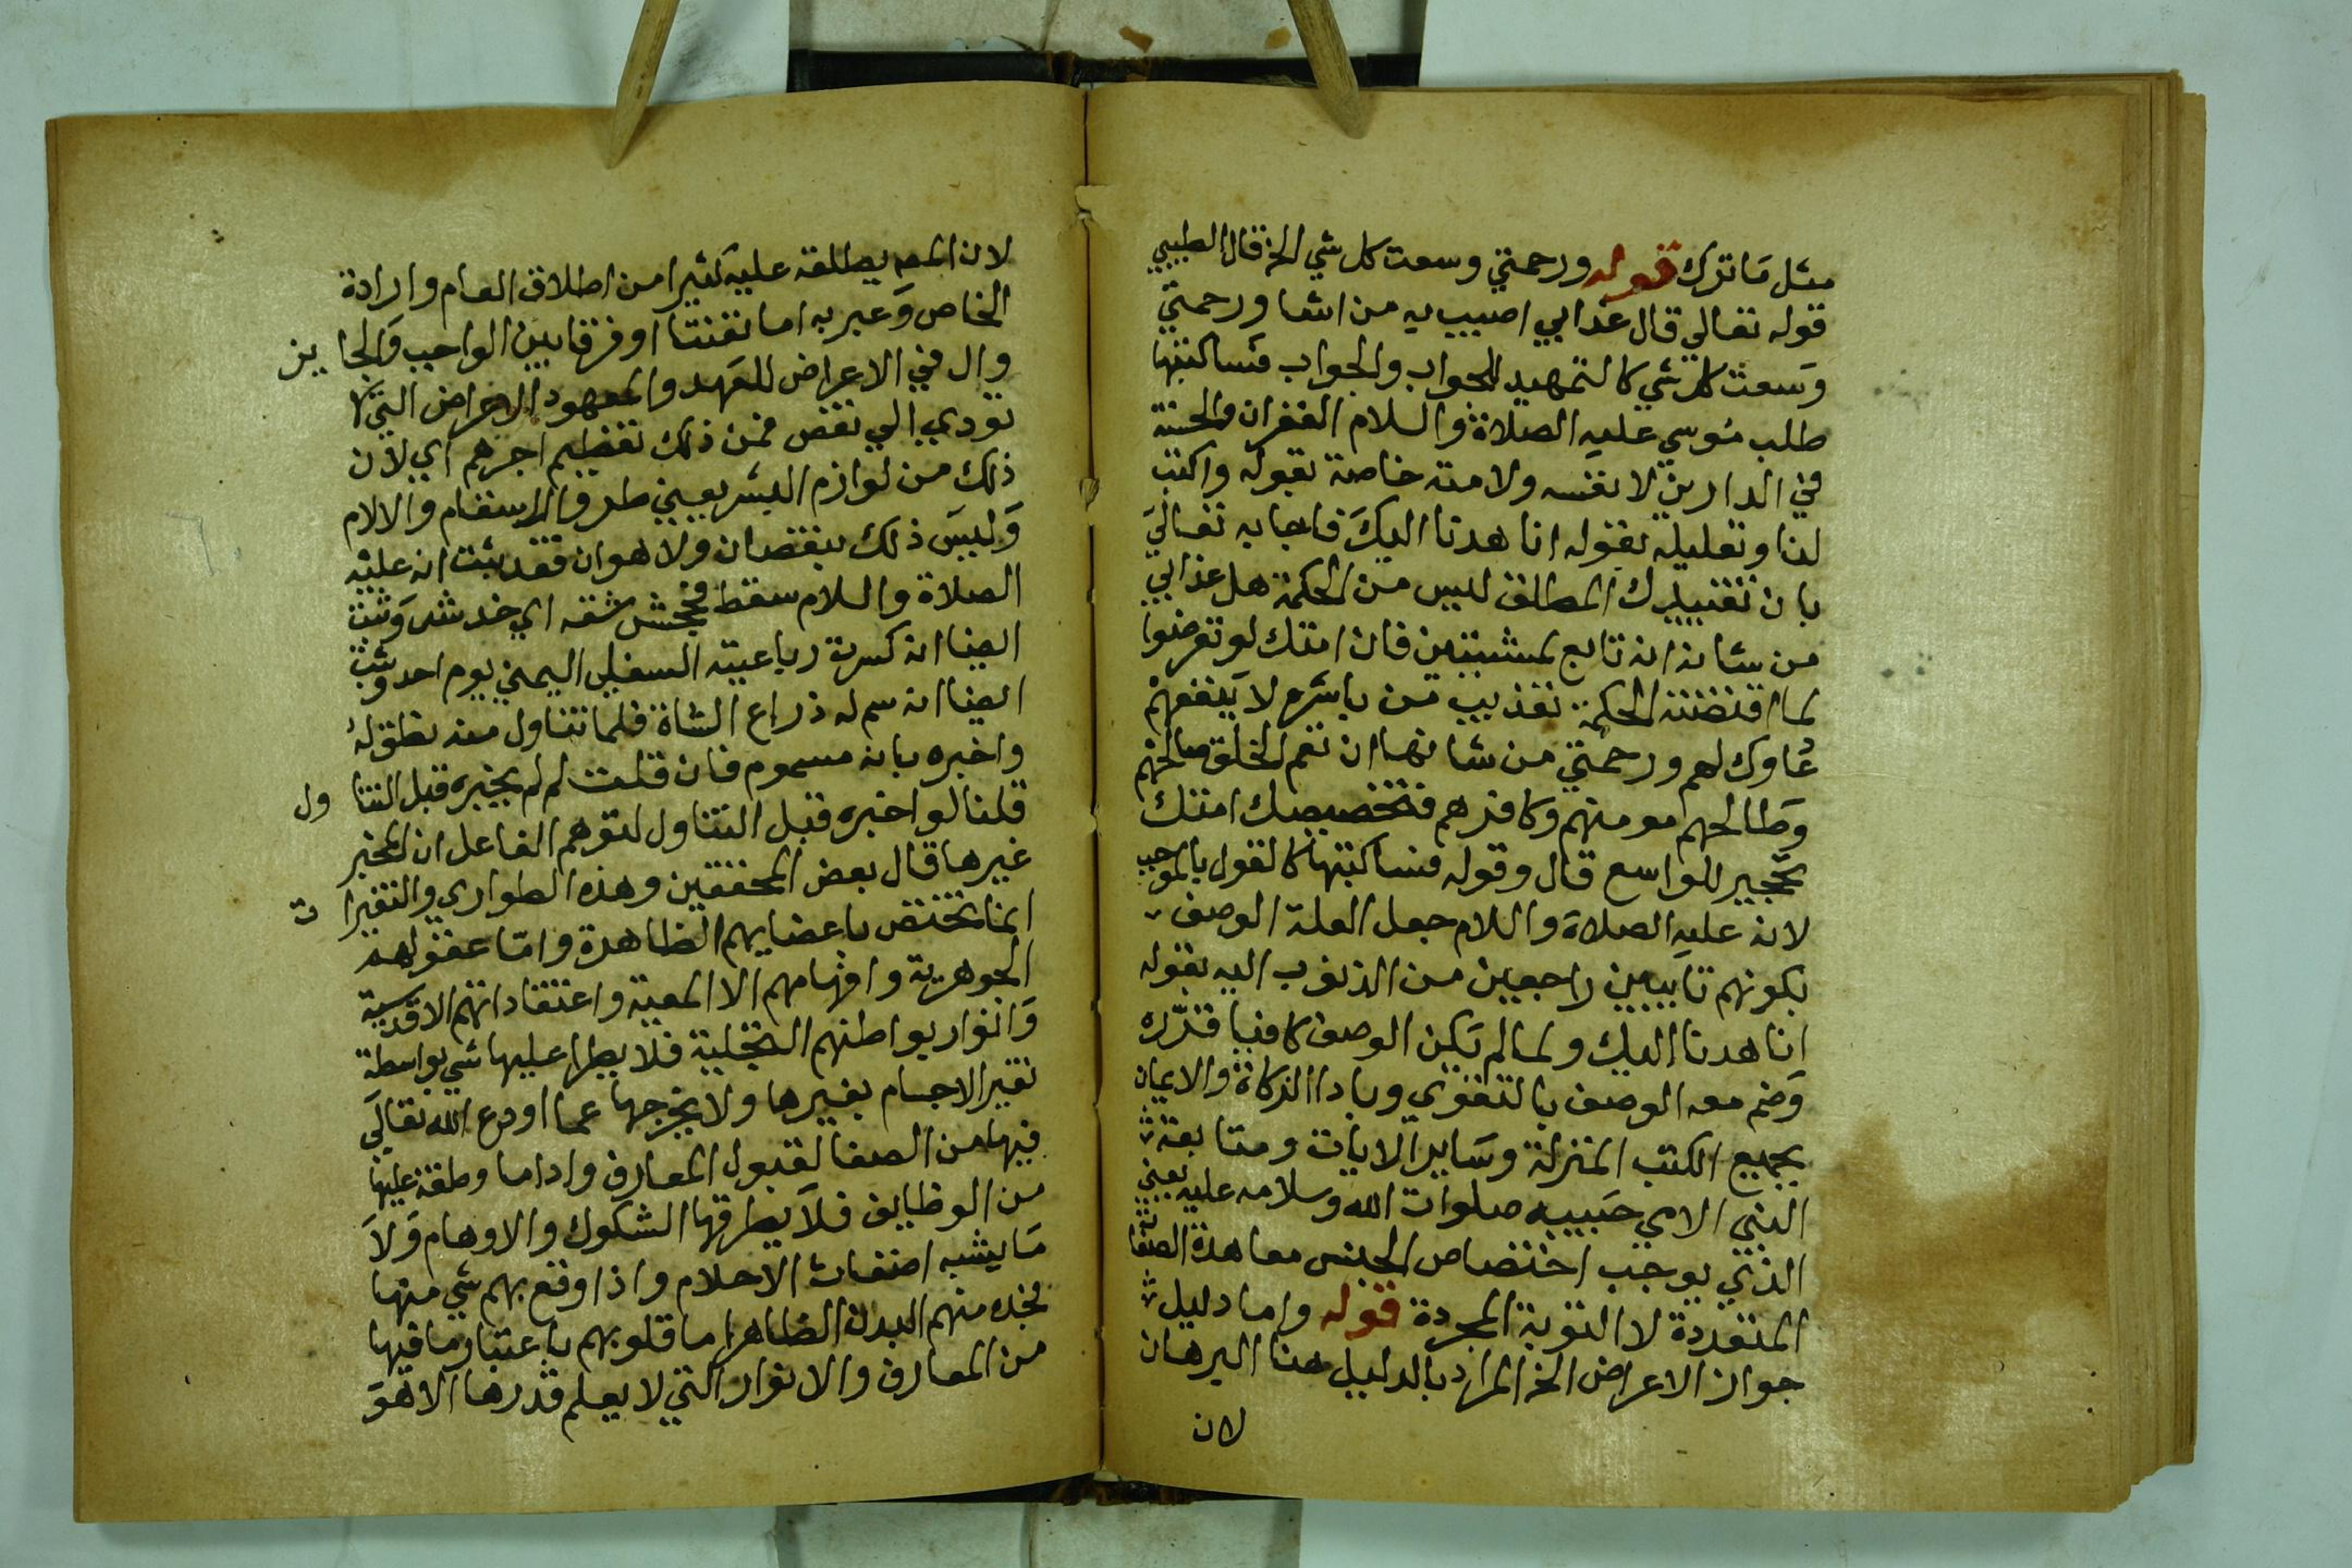 مثل ما ترك قوله ورحمتي وسعت كل شي الخ قال الطيبي
قوله تعالي قال عذابي اصيب به من اشا ورحمتي
وسعت كل شي كالتمهيد للجواب والجواب فساكتبها
طلب موسي عليه الصلاة والسلام الغفران والحسنة
في الدارين لانفسه ولامته خاصة بقوله واكتب
لنا وتعليله بقوله انا هدنا اليك فاجابه تعالي
بان تقييدك المطلق ليس من الحكمة هل عذابي
من شانه انه تابع لمشيتي فان امتك لو تعرضوا
لما اقتضته الحكمة تعذيب من باشره لا ينفعهم
دعاوك لهم ورحمتي من شانها ان تعم الخلق صالحهم
وطالحهم مومنهم وكافرهم فتخصيصك امتك
تحجير للواسع قال وقوله فساكتبها كالقول بالموجب
لانه عليه الصلاة والسلام جعل العلة الوصف
بكونهم تايبين راجعين من الذنوب اليه بقوله
انا هدنا اليك ولما لم يكن الوصف كافيا قرره
وضم معه الوصف بالتقوي وباداالزكاة والايمان
بجميع الكتب المنزلة وساير الايات ومتابعة
النبي الامي حبيبه صلوات الله وسلامه عليه يعني
الذي يوجب اختصاص الجنس معا هذه الصفات
المتعددة لا التوبة المجردة قوله واما دليل
جواز الاعراض الخ المراد بالدليل هنا البرهان
لان
لان المص يطلقه عليه كثيرا من اطلاق العام وارادة
الخاص وعبر به اما تفننا او فرقا بين الواجب والجايز
وال في الاعراض للعهد والمعهود الاعراض التي لا
تودي الي نقص فمن ذلك تعظيم اجرهم اي لان
ذلك من لوازم البشر يعني طرو الاسقام والالام
وليس ذلك بنقصان ولا هوان فقد ثبت انه عليه
الصلاة والسلام سقط فجحش شقه اي خدش وثبت
ايضا انه كسرت رباعيته السفلي اليمني يوم احد وثبت
ايضا انه سم له ذراع الشاة فلما تناول منه نطق له
واخبره بانه مسموم فان قلت لم لم يخبره قبل التناول
قلنا لو اخبره قبل التناول لتوهم الفاعل ان المخبر
غيرها قال بعض المحققين وهذه الطواري والتغيرات
انما تختص باعضايهم الظاهرة واما عقولهم
الجوهرية وافهامهم الا المعية واعتقاداتهم الاقدسية
وانوار بواطنهم التجلية فلا يطرا عليها شي بواسطة
تغير الاجسام بغيرها ولا يخرجها عما اودع الله تعالي
فيها من الصفا لقبول المعارف واداما وظفه عليها
من الوظايف فلا يطرقها الشكوك والاوهام ولا
ما يشبه اضغاث الاحلام واذا وقع بهم شي منها
فحده منهم البدن الظاهر اما قلوبهم باعتبار ما فيها
من المعارف والانوار التي لا يعلم قدرها الا هو